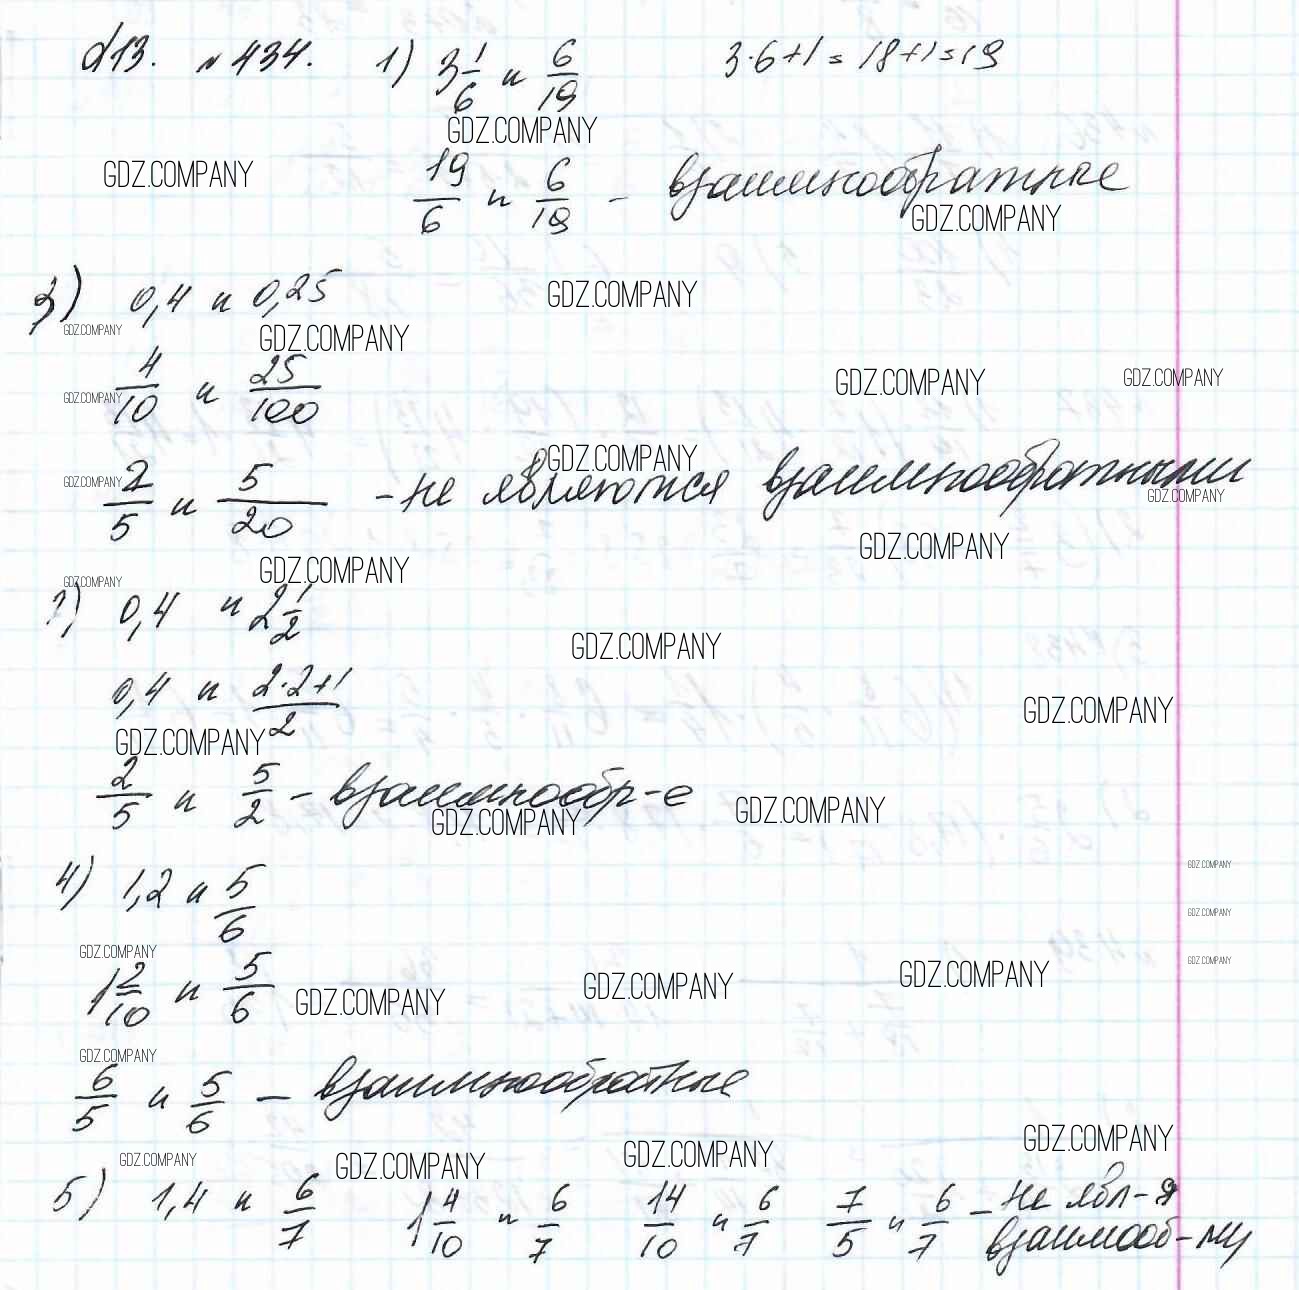 d13. №434. 1) 3 1/6 и 6/19 3·6+1=18+1=19
GDZ.COMPANY
GDZ.COMPANY
19/6 и 6/19 – взаимнообратные
GDZ.COMPANY
3) 0,4 и 0,25
GDZ.COMPANY
GDZ.COMPANY GDZ.COMPANY
4/10 и 25/100
GDZ.COMPANY GDZ.COMPANY GDZ.COMPANY
GDZ.COMPANY
2/5 и 5/20 – не являются взаимнообратными
GDZ.COMPANY GDZ.COMPANY
GDZ.COMPANY
GDZ.COMPANY GDZ.COMPANY
2) 0,4 и 2 1/2
GDZ.COMPANY
0,4 и 2·2+1/2
GDZ.COMPANY
GDZ.COMPANY
2/5 и 5/2 – взаимнообр-е
GDZ.COMPANY GDZ.COMPANY
4) 1,2 и 5/6
GDZ.COMPANY
GDZ.COMPANY
GDZ.COMPANY GDZ.COMPANY
1 2/10 и 5/6
GDZ.COMPANY GDZ.COMPANY GDZ.COMPANY
GDZ.COMPANY
6/5 и 5/6 – взаимнообратные
GDZ.COMPANY
GDZ.COMPANY GDZ.COMPANY GDZ.COMPANY
5) 1,4 и 6/7 1 4/10 и 6/7 14/10 и 6/7 7/5 и 6/7 – не явл-я
взаимооб-ми